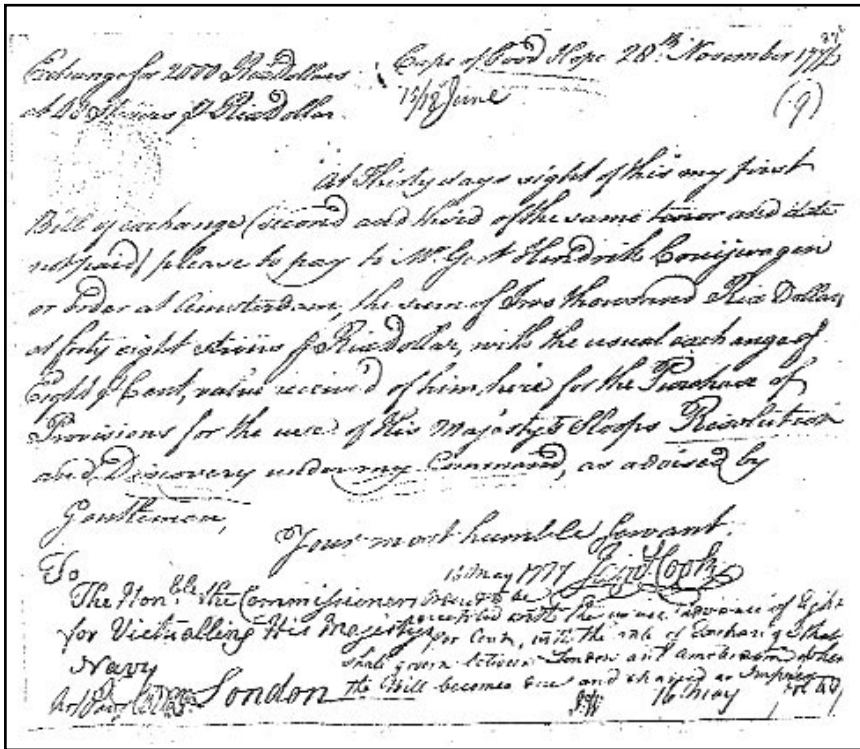 Exchange for 2000 Rix Dollars
at 48 Stivers pr Rix Dollar.
Cape of Good Hope 28th. November 1776
15/18 June
(9)
At Thirty days sight of this my first
Bill of exchange (second and third of the same tenor and date
not paid) please to pay to Mr. Gert Hendrik
or order at Amsterdam, the sum of Two thousand Rix Dollars
at forty eight stivers pr Rix Dollar, with the usual exchange of
Eight pr Cent, value receiv'd of him here for the Purchase of
Provisions for the use of His Majesty's Sloops Resolution
and Discovery under my Command, as advised by
Gentlemen,
Your most humble Servant.
Jams. Cook
To
The Honble. the Commissioners
for Victualling His Majestys
Navy
London
15 May 1777
accepted with the usual advance of Eight
per Cent, with the rate of Exchange that
shall govern between London and Amsterdam when
the Bill becomes due and charged as Imprest
16 May